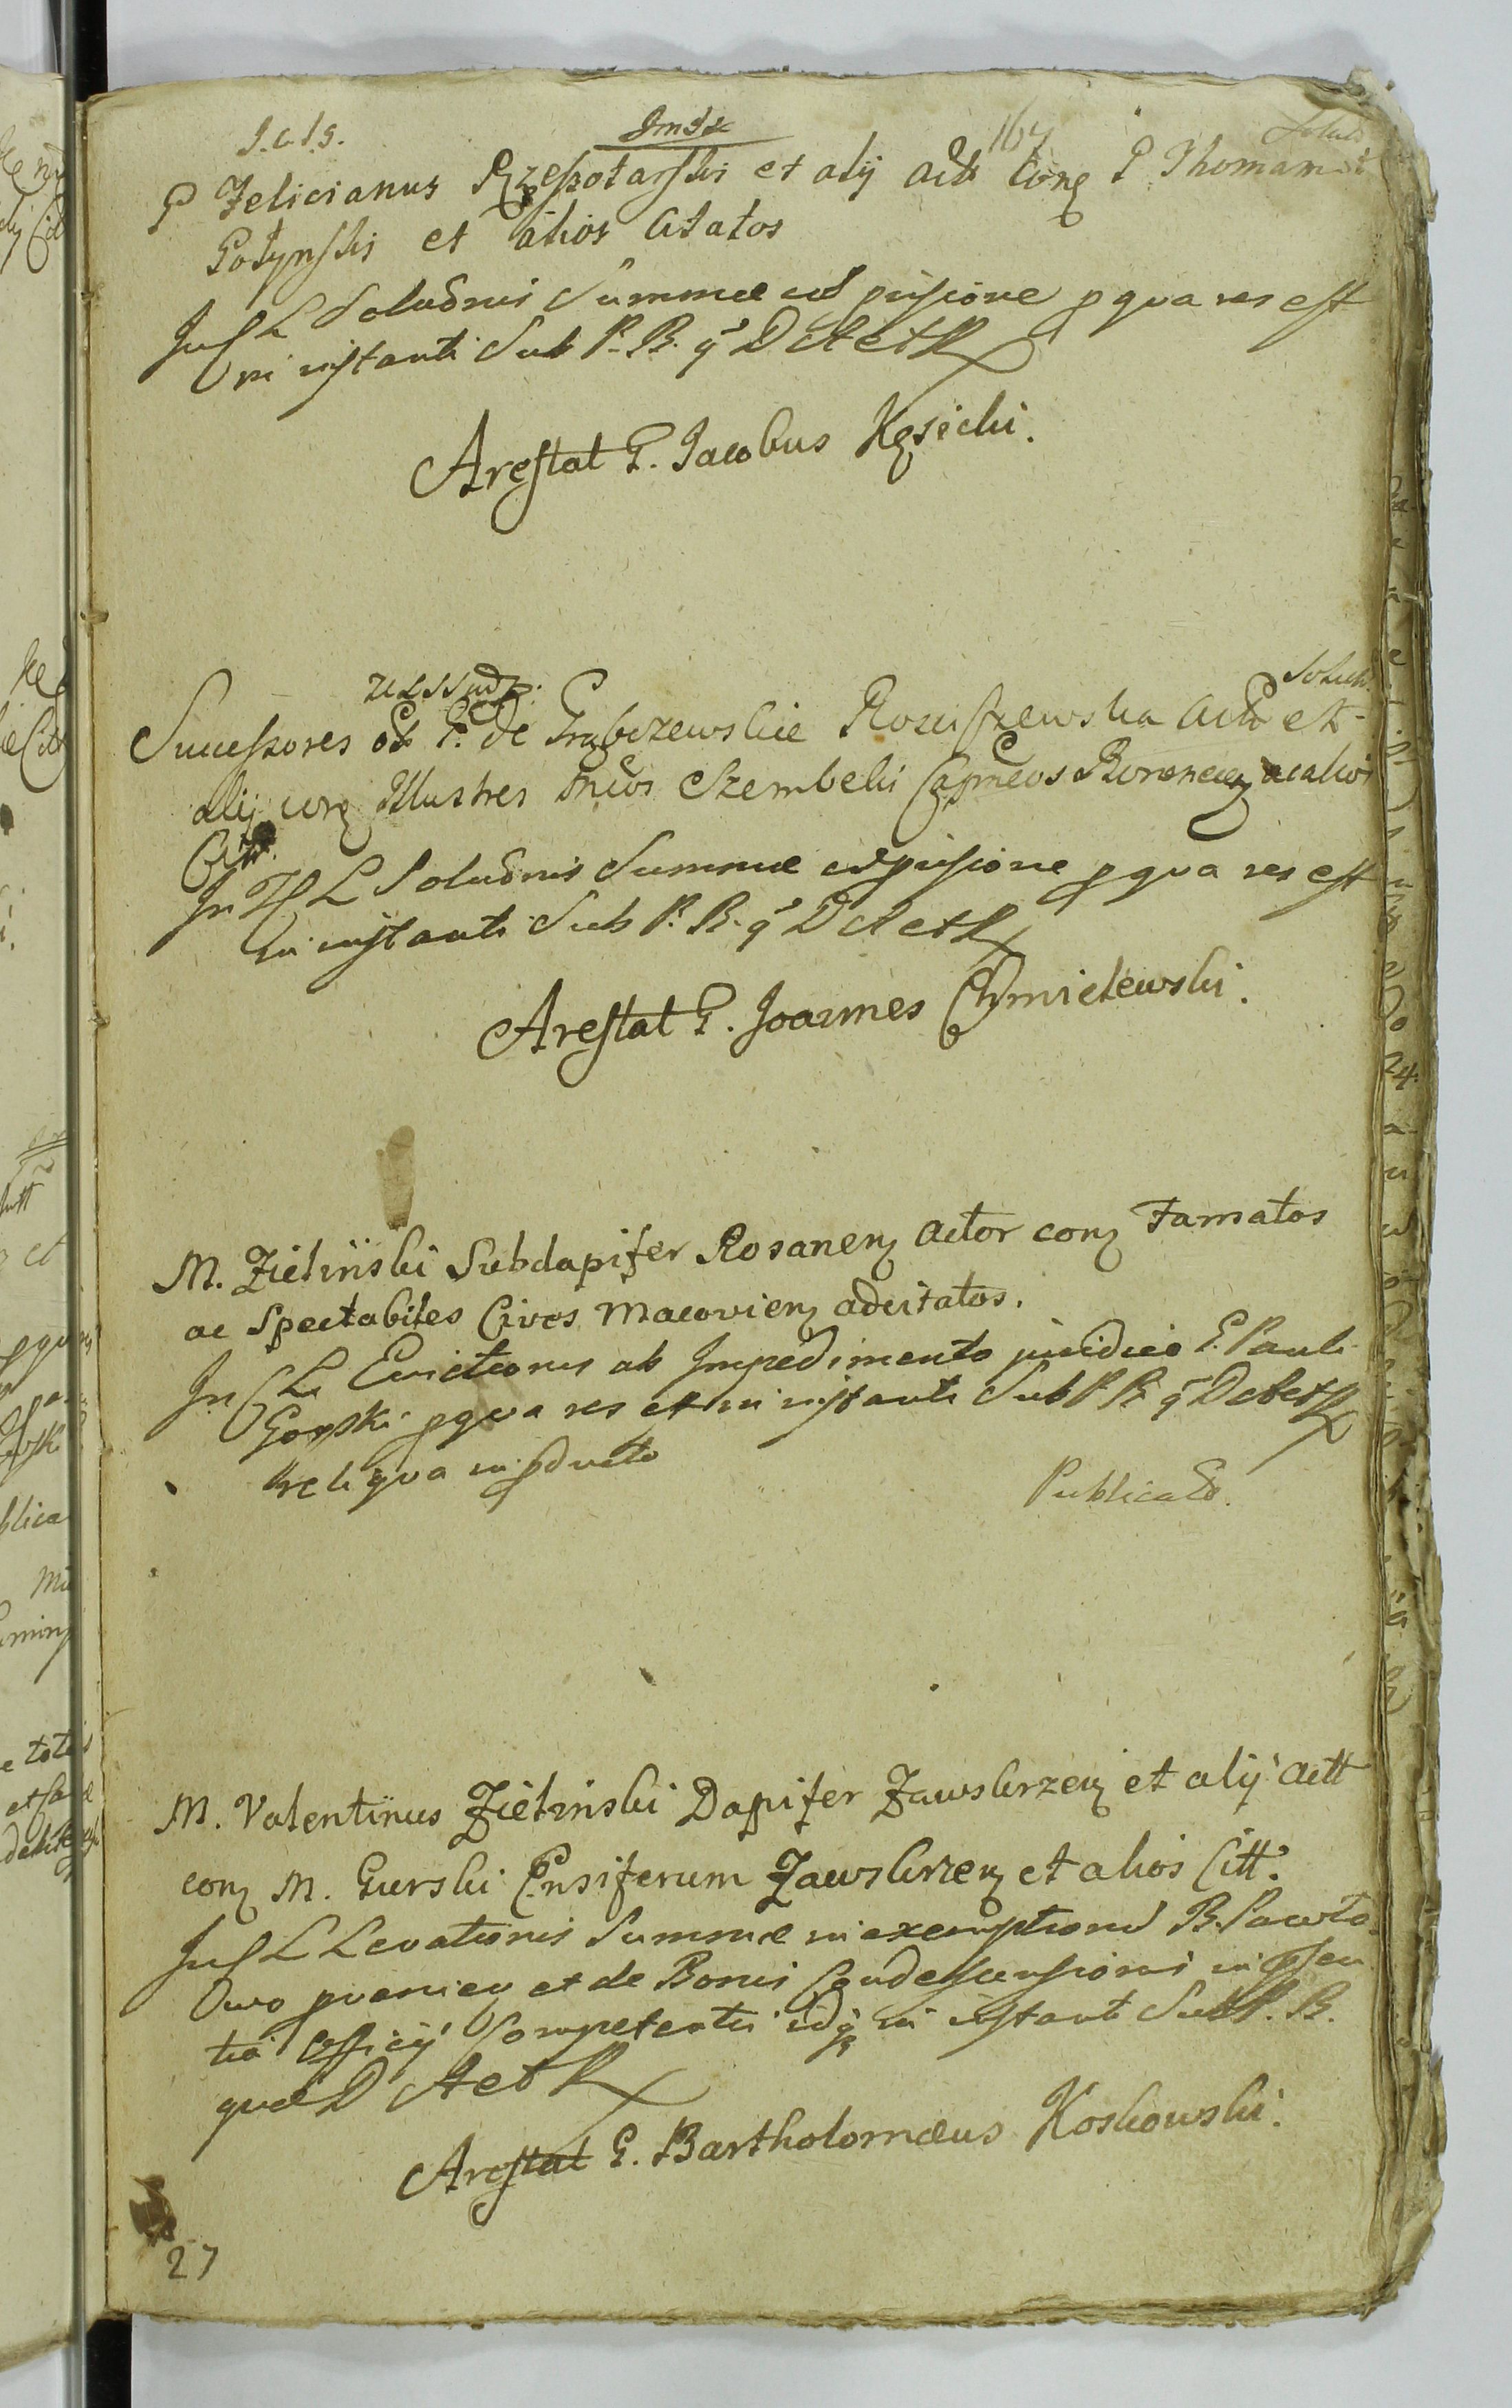 167
G Felicianus Rzeszotarski et alij Actt Conz G Thomam
Gotynski et alios Citatos
In S L Solutionis Summae cum pensione p qua res est
in instanti Sub P. B. q D A et R
Arestat G. Jacobus Kęsicki.
Solut.
Successores G. de Grąbczewskie Rosciszewska Actt et
alij conz Illustres Szembeki Capneos ac alios
Citt.
In S L Solutionis Summae cum pensione p qua res est
in instanti Sub P. B. q D A et R
Arestat G. Joannes Chmielewski.
M. Zielinski Subdapifer Rosanenz Actor conz Famatos
ac Spectabiles Cives Macovienz adcitatos.
In S L Evictionis ab Impedimento juridico G. Pauli
Gorski p qua res est in instanti Sub P. B. q D A et R
reliqua in pducto
Publicato.
M. Valentinus Zielinski Dapifer Zawskrzenz et alij Actt
conz M. Gurski Ensiferum Zawskrzenz et alios Citt.
In S L Levationis Summae in exemptione B.
et de Bonis Condescensionis in psen
tia Officij Competentis idq in instanti Sub P. B.
quae D A et R
Arestat G. Bartholomaeus Koskowski.
27